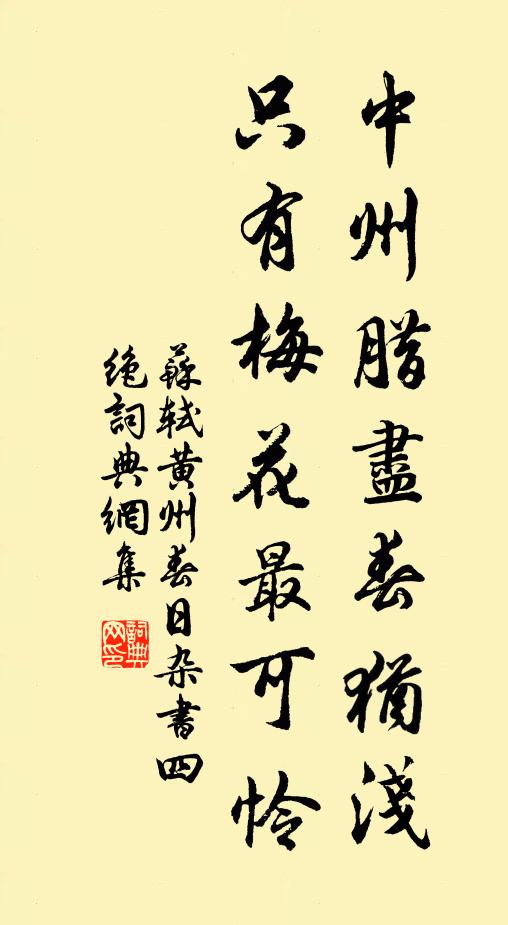 中州腊盡春猶淺
只有梅花最可怜
蘇軾黄州春日杂書四
絶詞典網集
詞典
网印